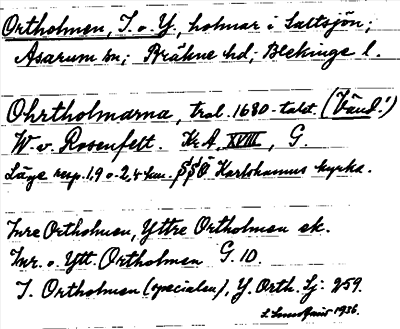 Ortholmen, I. o. Y., holmar i Saltsjön;
Asarum sn; Bräkne hd; Blekinge l.
Ohrtholmarna, trol. 1680-talet.
W. v. Rosenfelt. Kr A, XVIII, G.
Läge resp. 1,9 o. 2,4 km. SSO Karlshamns kyrka.
Inre Ortholmen, Yttre Ortholmen ek.
Inr. o. Ytt. Ortholmen G. 10.
I. Ortholmen (specialen), Y. Orth. Sj: 259.
1936.